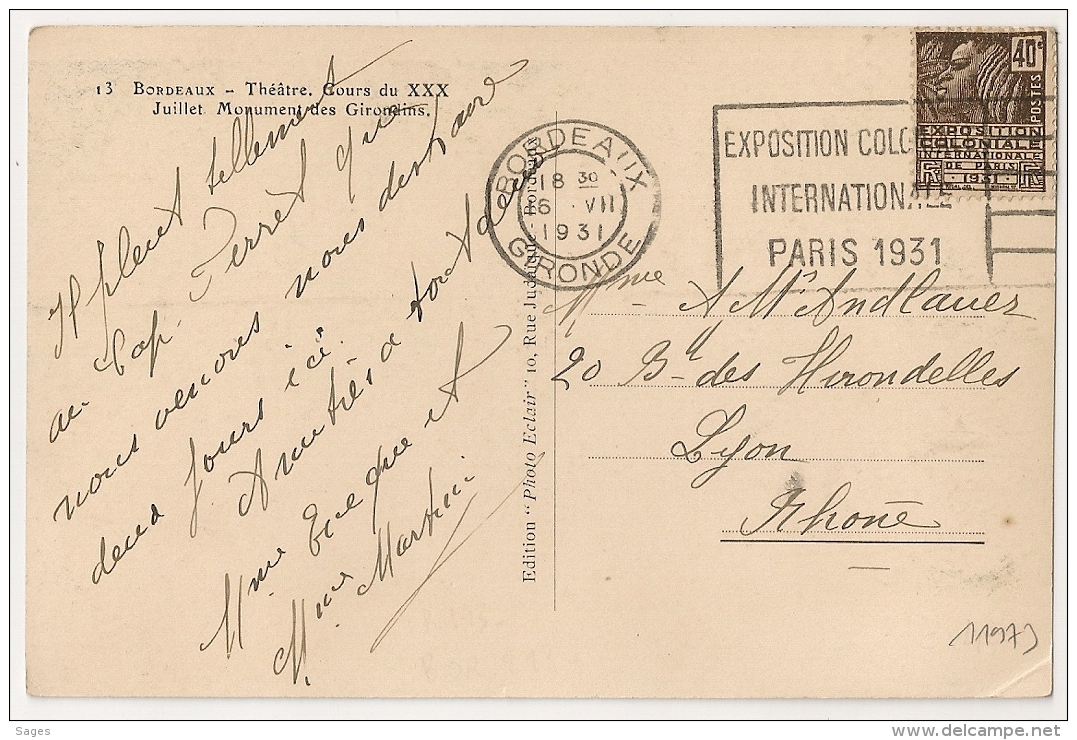 13 BORDEAUX – Théâtre. Cours du XXX
Juillet Monument des Girondins.
Il pleut tellement
au Cap Ferret que
nous venons nous distraire
deux jours ici.
Amitiés à toutes deux
Mme et
Mme Martini
Edition "Photo Eclair" 10, Rue Judaïque
BORDEAUX
18 30
16 VII
1931
GIRONDE
EXPOSITION COLO
INTERNATIONALE
PARIS 1931
40c
POSTES
EXPOSITION
COLONIALE
INTERNATIONALE
DE PARIS
1931
Mme A Mt Andlauer
20 Bd des Hirondelles
Lyon
Rhône
11973
Sages
www.delcampe.net